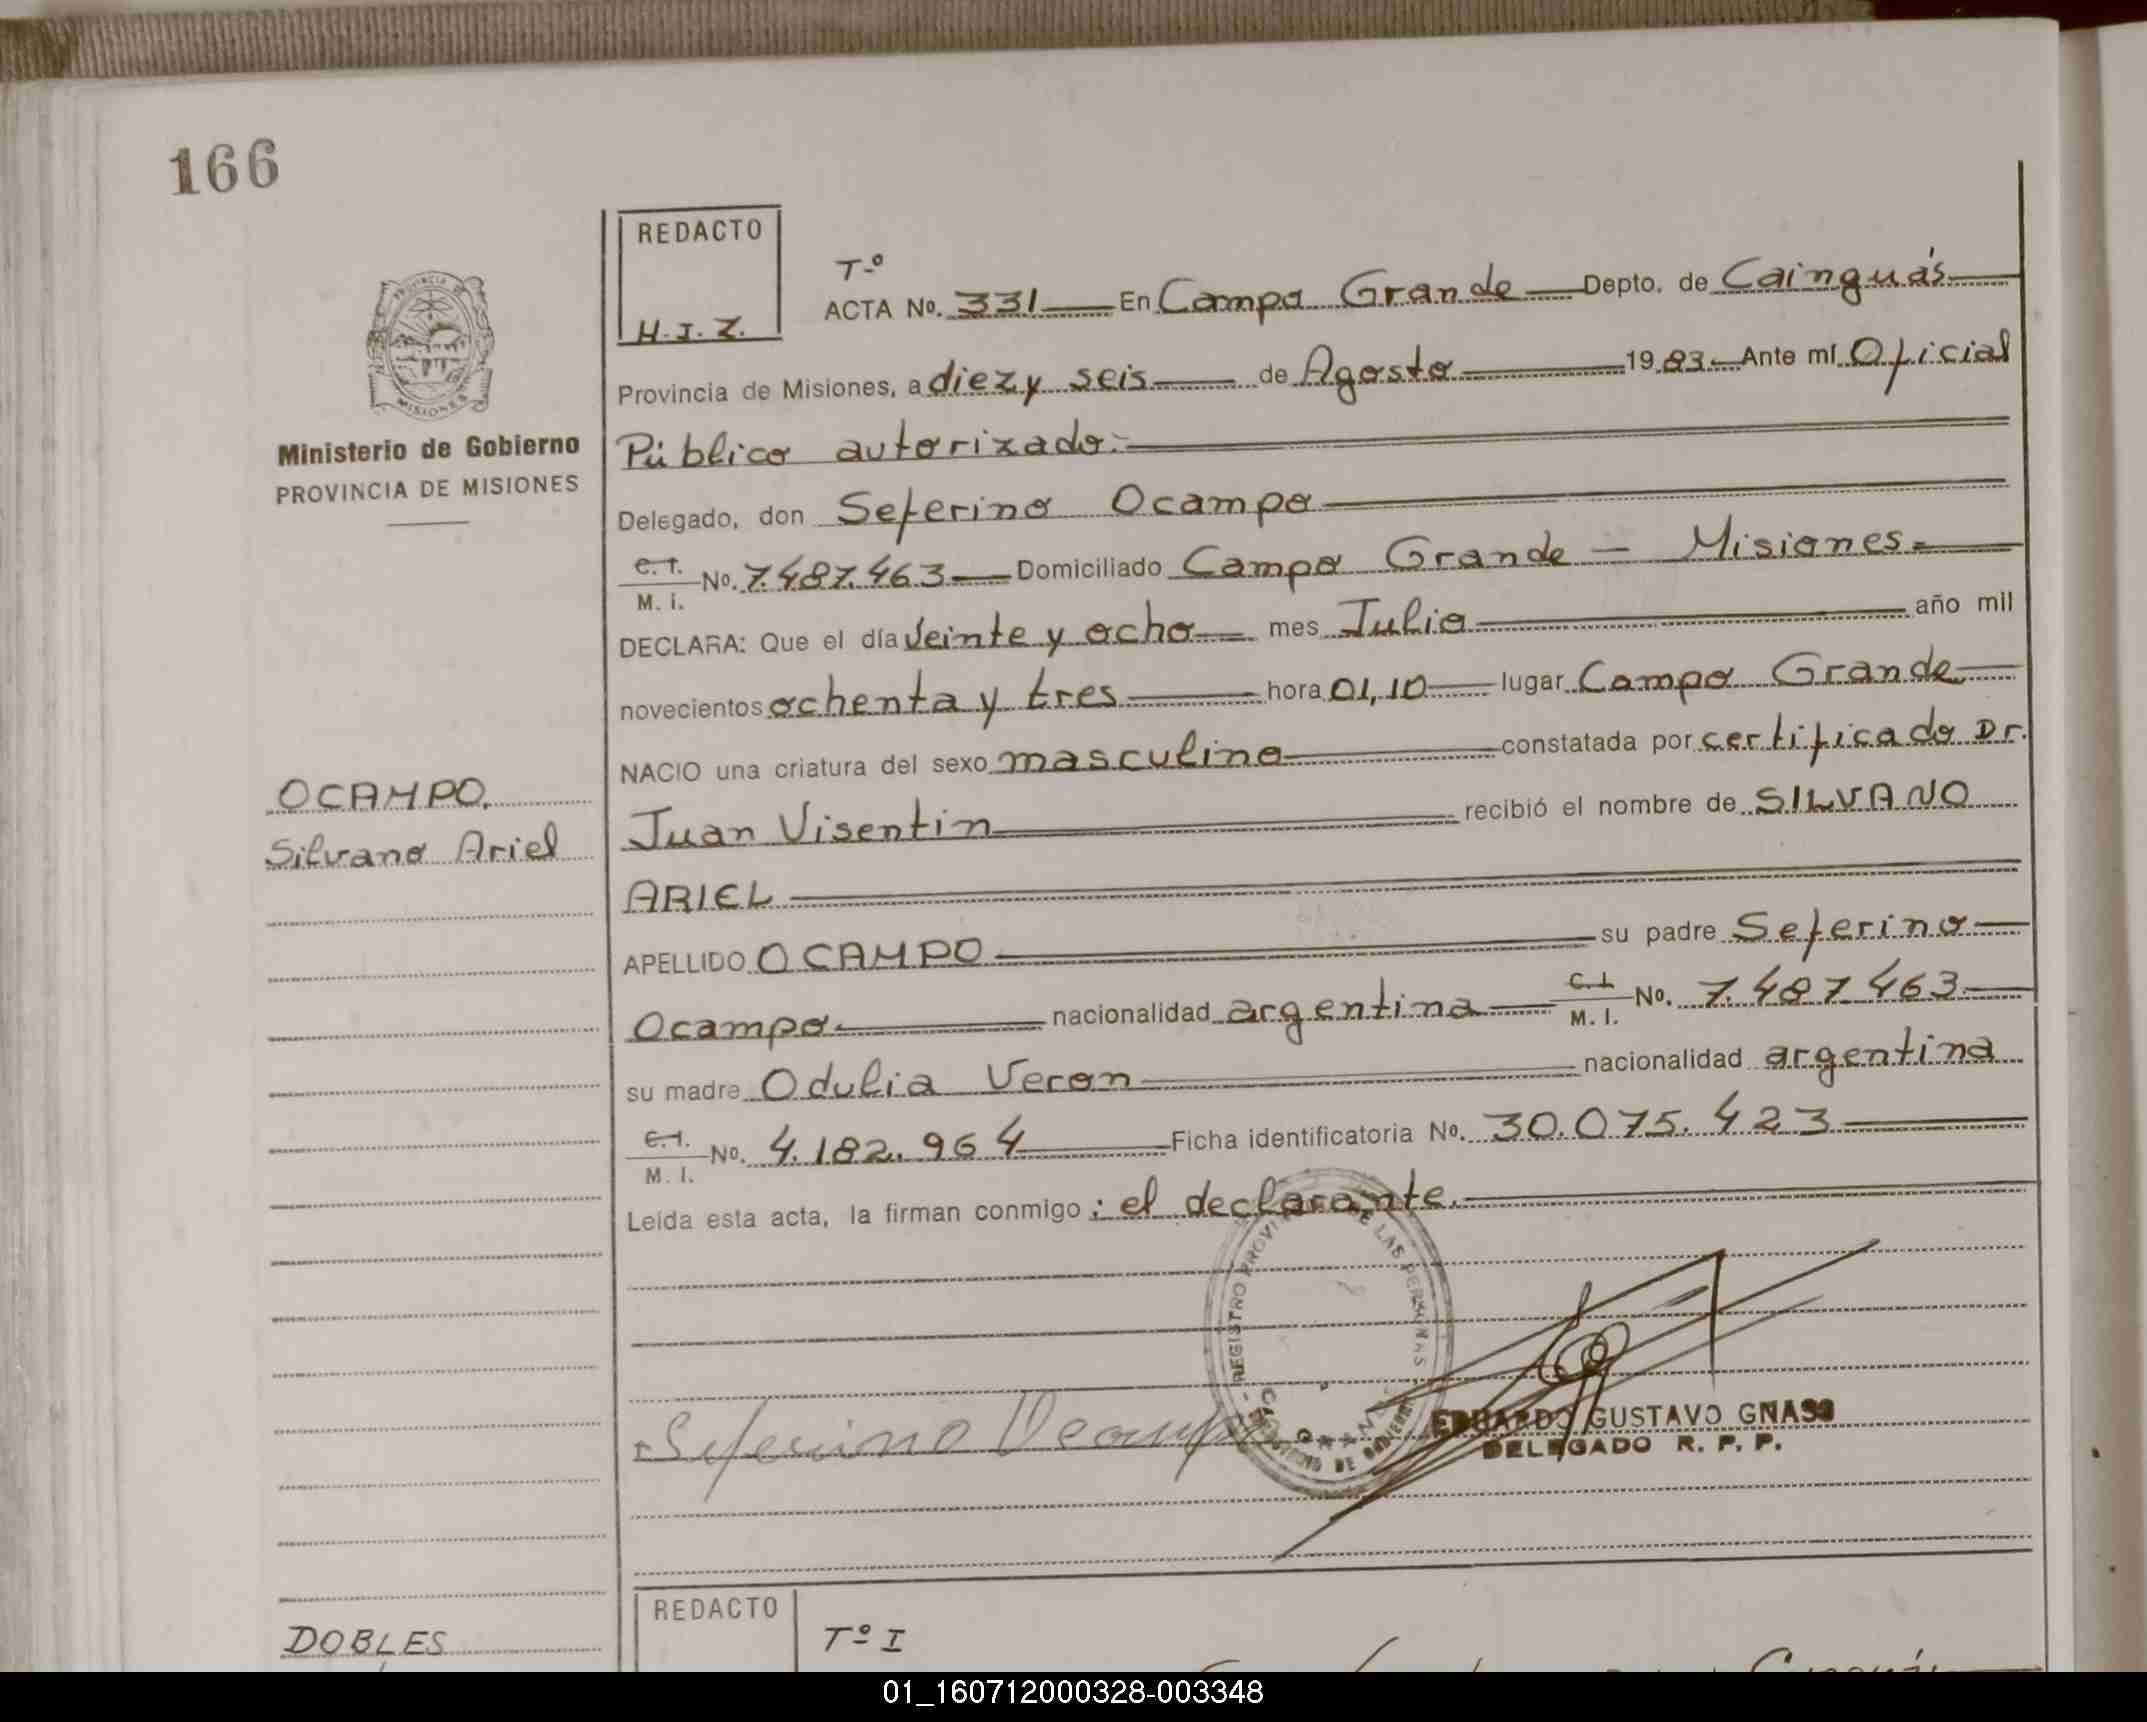 166
REDACTO
H.J.Z.
PROVINCIA DE
MISIONES
Ministerio de Gobierno
PROVINCIA DE MISIONES
T.º
ACTA No. 331 En Campo Grande Depto. de Cainguás
Provincia de Misiones, a diez y seis de Agosto 1983 Ante mí Oficial
Público autorizado.-
Delegado, don Seferino Ocampo
C.I. M.I. No. 7.487.463 Domiciliado Campo Grande - Misiones.-
DECLARA: Que el día Veinte y ocho mes Julio año mil
novecientos ochenta y tres hora 01,10 lugar Campo Grande.
NACIO una criatura del sexo masculino constatada por certificado Dr.
OCAMPO.
Silvano Ariel
Juan Visentin recibió el nombre de SILVANO
ARIEL
APELLIDO OCAMPO su padre Seferino
Ocampo. nacionalidad argentina C.I. M.I. No. 7.487.463
su madre Odulia Veron nacionalidad argentina
C.I. M.I. No. 4.182.964 Ficha identificatoria No. 30.075.423
Leída esta acta, la firman conmigo: el declarante.
REGISTRO PROVI DE LAS PERSONAS
Seferino Ocampo
EDUARDO GUSTAVO GNASS
DELEGADO R. P. P.
REDACTO
Tº I
DOBLES
01_160712000328-003348